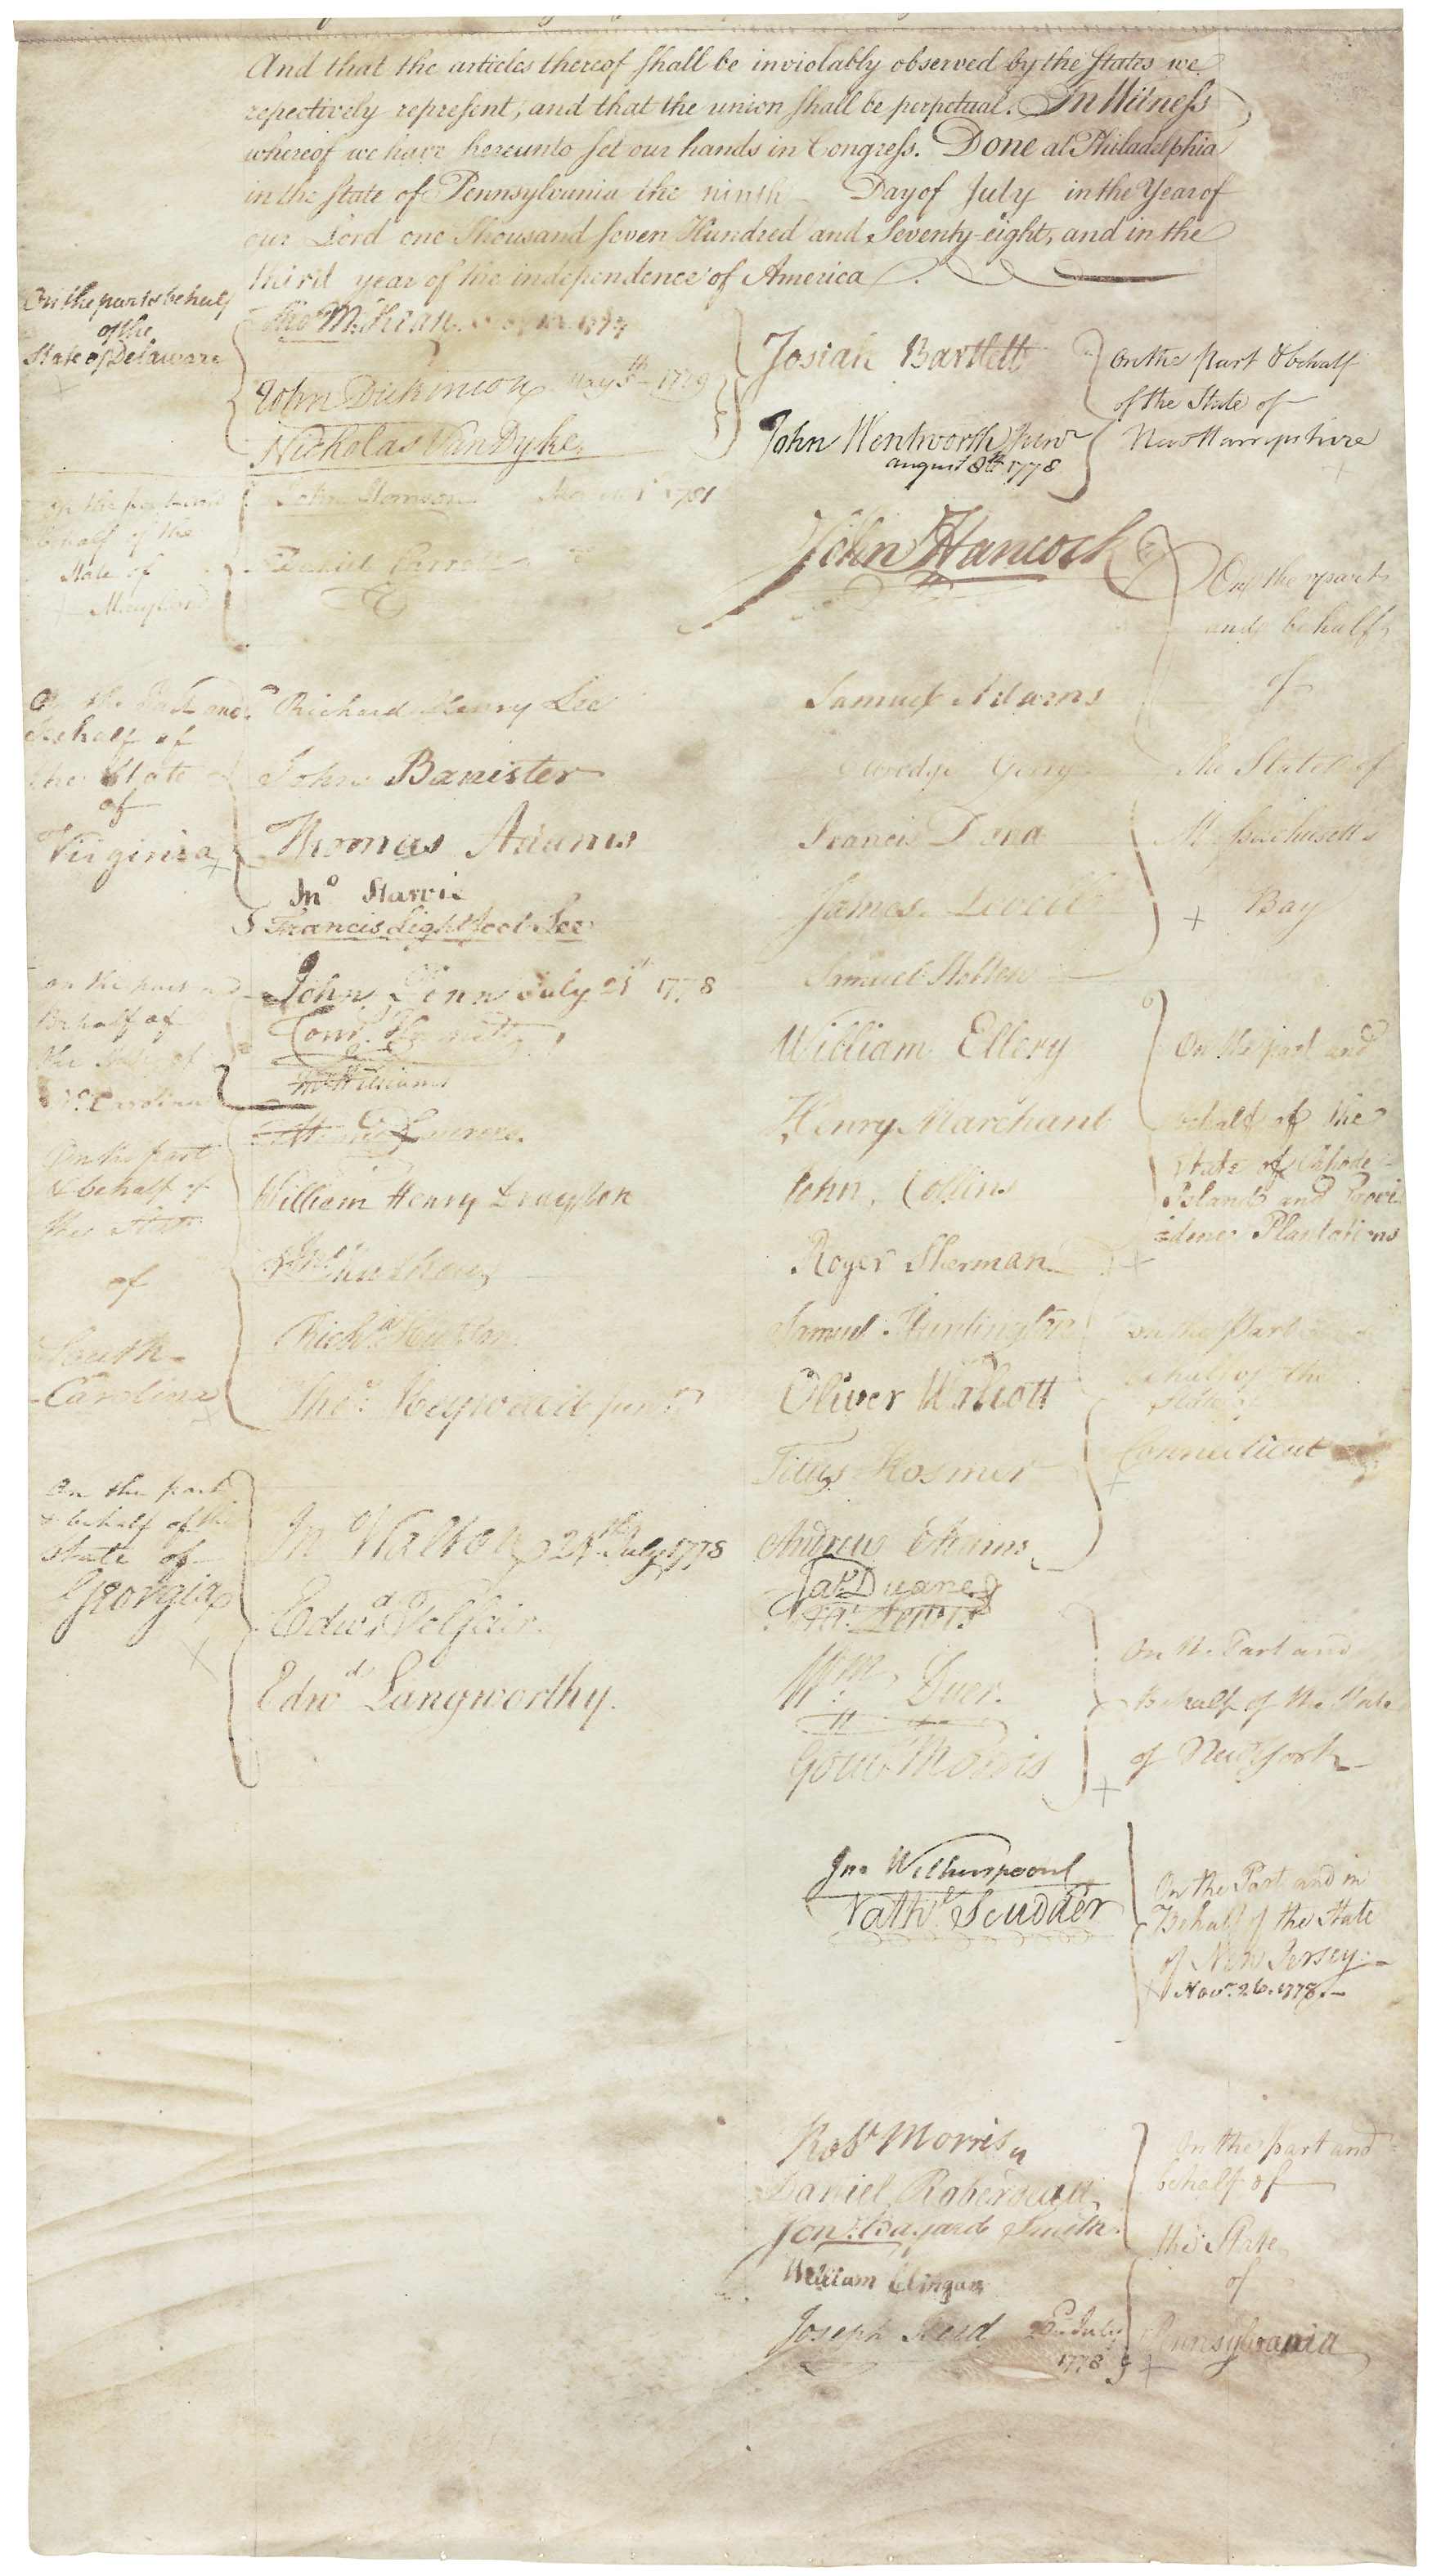 And that the articles thereof shall be inviolably observed by the States we
repectively represent, and that the union shall be perpetual. In Witness
whereof we have hereunto set our hands in Congress. Done at Philadelphia
in the State of Pennsylvania the ninth Day of July in the Year of
our Lord one Thousand seven Hundred and Seventy-eight, and in the
third year of the independence of America.
On the part & behalf
of the
State of Delaware
Tho M:Kean
John Dickinson May 5th 1779
Nicholas Van Dyke,
on the part and
behalf of the
State of
Maryland
John Hanson March 1 1781
Daniel Carroll do
On the Part and
Behalf of
the State
of
Virginia
Richard Henry Lee
John Banister
Thomas Adams
Jno Harvie
Francis Lightfoot Lee
on the part and
Behalf of
the State of
No. Carolina
John Penn July 21st 1778
Corns Harnett
Jno Williams
On the part
& behalf of
the State
of
South-
Carolina
Henry Laurens.
William Henry Drayton
Jno Mathews
Richd Hutson.
Thos: Heyward junr
On the part
& behalf of the
State of
Georgia
Jno Walton 24th July 1778
Edwd Telfair.
Edwd Langworthy.
Josiah Bartlett
John Wentworth Junr
august 8th 1778
On the part & behalf
of the State of
New Hampshire
John Hancock
Samuel Adams
Elbridge Gerry
Francis Dana
James Lovell
Samuel Holten
On the part
and behalf
of
The State of
Massachusetts
Bay
William Ellery
Henry Marchant
John Collins
On the part and
behalf of the
State of Rhode-
Island and Provi
=dence Plantations
Roger Sherman
Samuel Huntington
Oliver Wolcott
Titus Hosmer
Andrew Adams
on the Part
behalf of the
State of
Connecticut
Jas Duane
Fra: Lewis
Wm: Duer.
Gouv Morris
On the Part and
Behalf of the State
of New York
Jno Witherspoon
Nathl Scudder
On the Part and in
Behalf of the State
of New Jersey.—
Novr. 26. 1778.—
Robt Morris
Daniel Roberdeau
Jon: Bayard Smith.
William Clingan
Joseph Reed 22d July
1778
On the part and
behalf of
the State
of
Pennsylvania